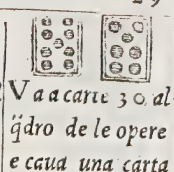 29
Va a carte 30. al
q̃dro de le opere
e caua una carta